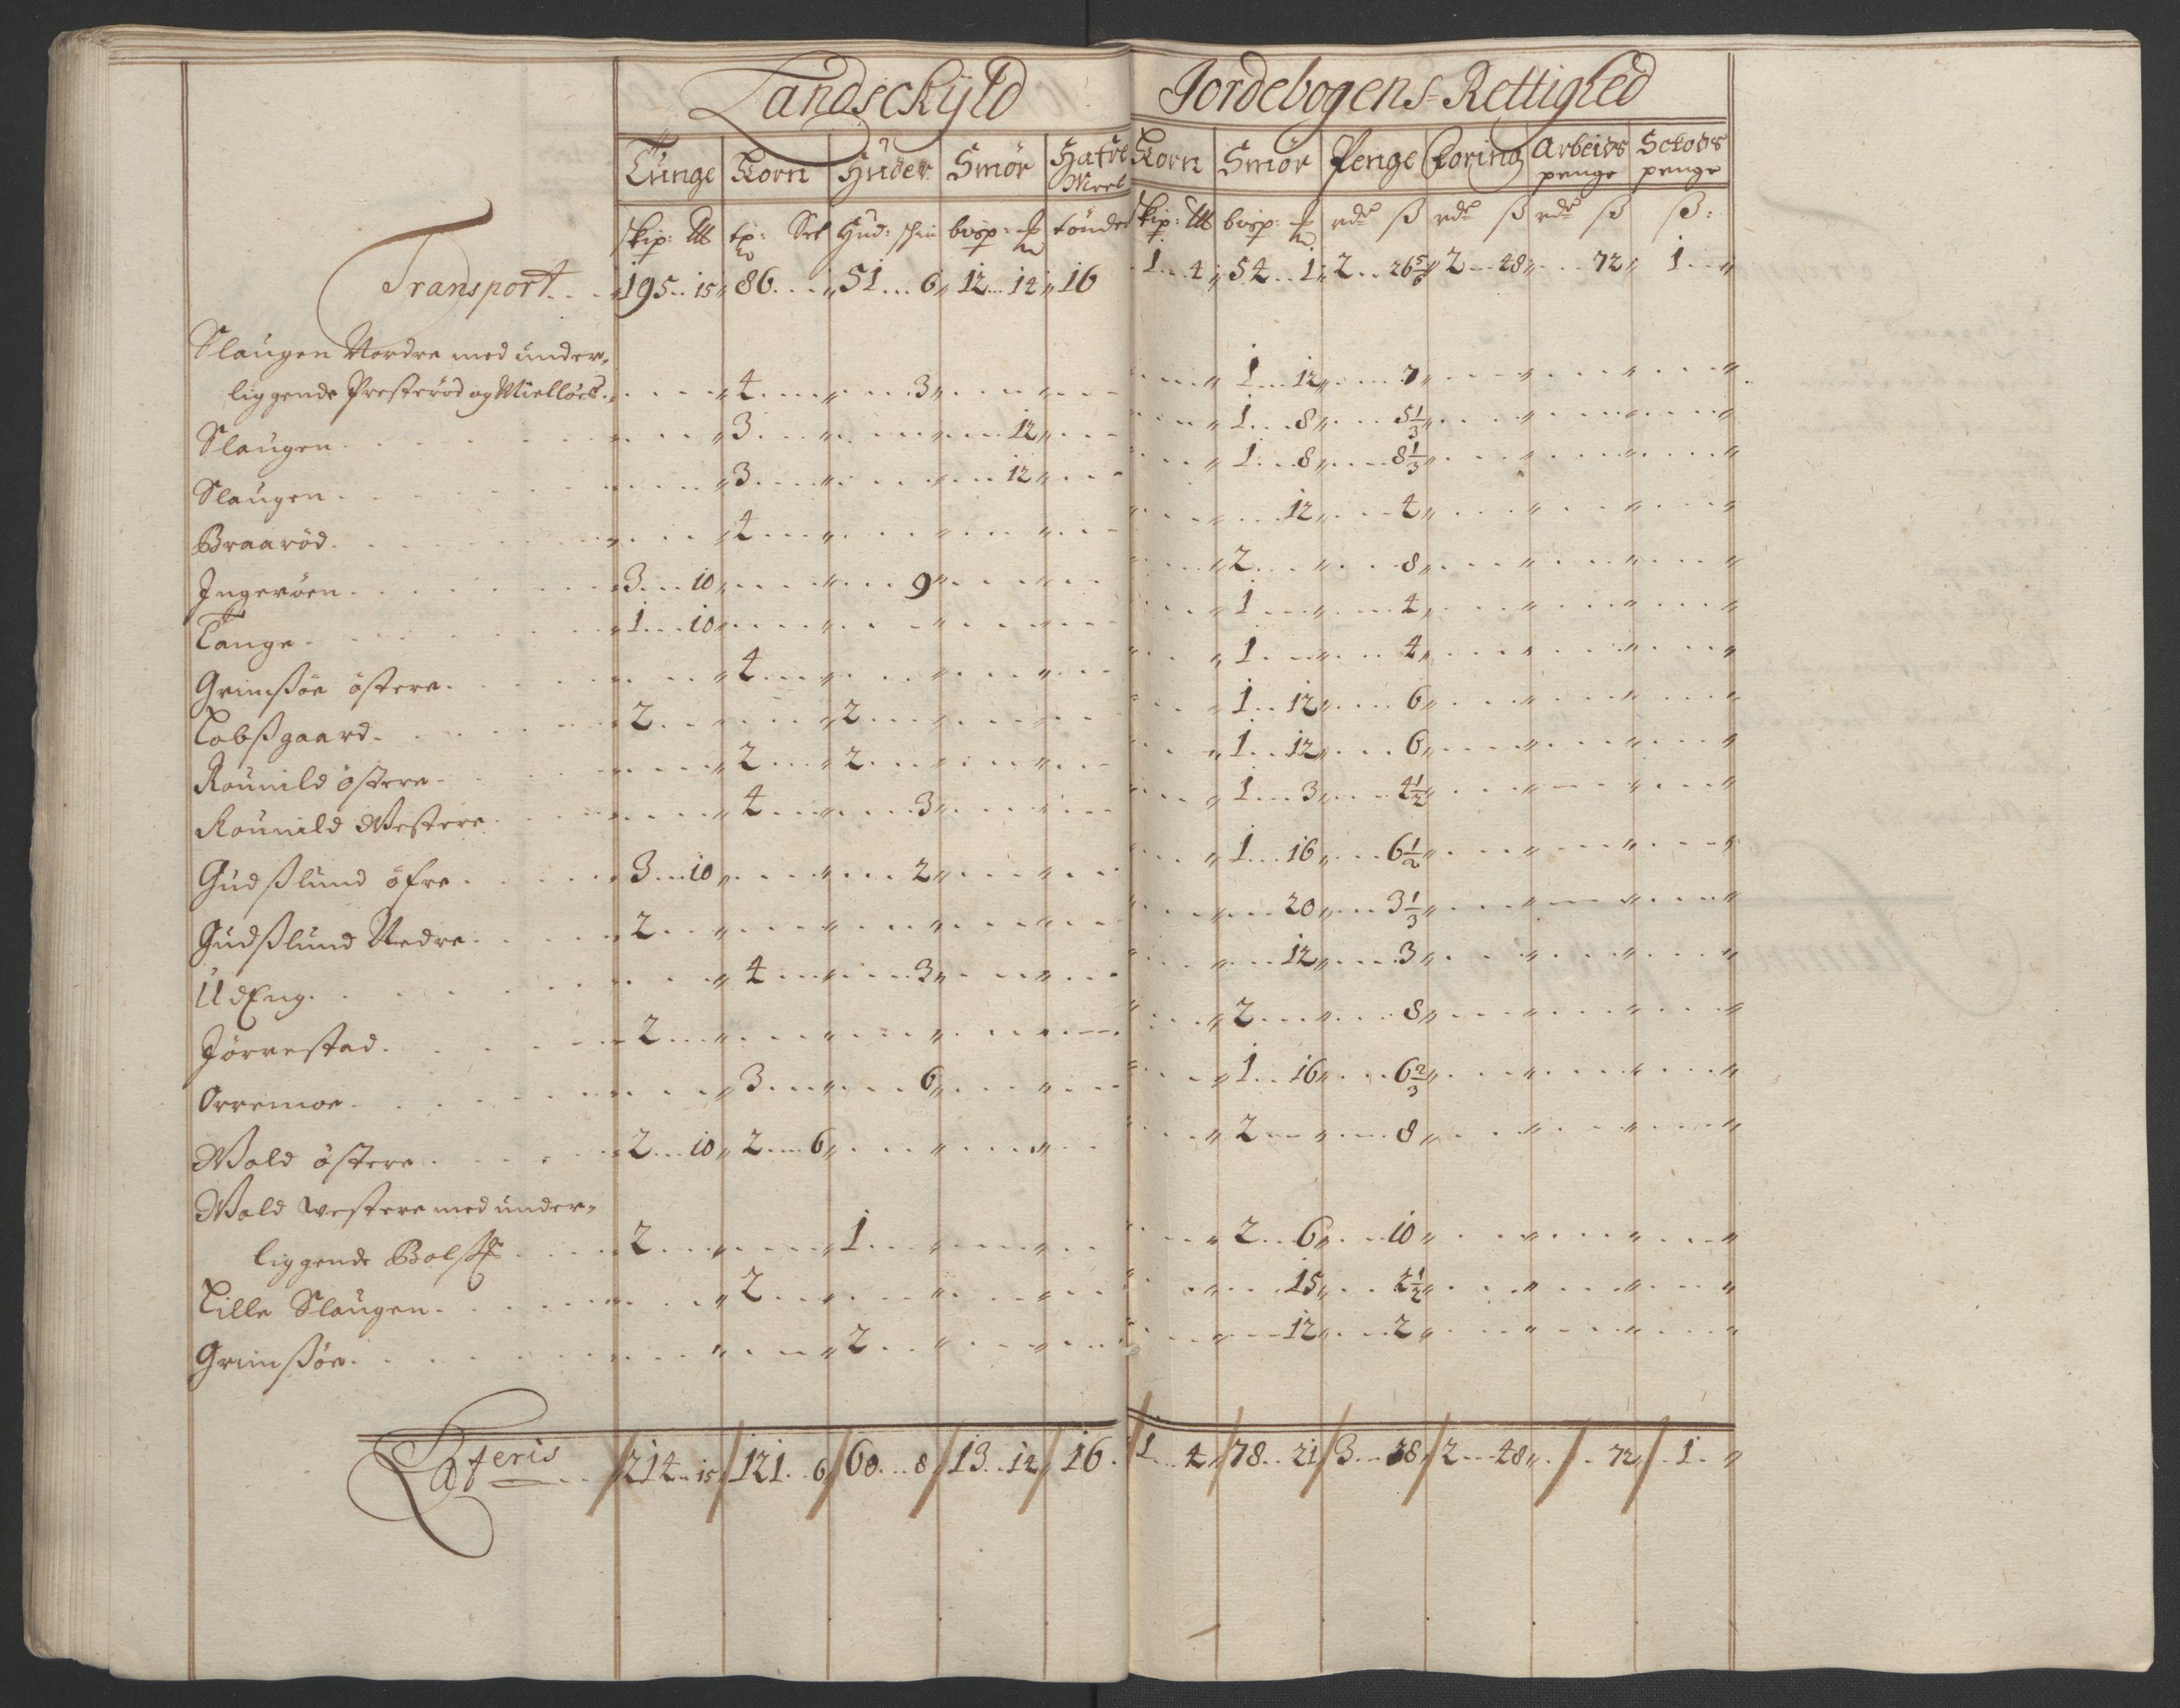 Landschÿld Jordebogens Rettighed
Tunge Korn Huder Smör Hafre Meel Korn Smör Penge Foring Arbeids penge Schovs penge
skip: tt tp: Set Hud: schin bvsp: tönder skip: tt bvsp: rdr ß rdr ß rdr ß ß:
Transport 195 15 86 51 6 12 14 16 1 4 54 1 2 26 5/6 2 48 72 1
Slaugen Nordre med under-
liggende Presteröd og Miellöes 4 3 1 12 7
Slaugen 3 12 1 8 5 1/3
Slaugen 3 12 1 8 8 1/3
Braaröd 4 12 4
Ingeröen 3 10 9 2 8
Tange 1 10 1 4
Grimßöe östere 4 1 4
Lobßgaard 2 2 1 12 6
Rounild östere 2 2 1 12 6
Rounild Westere 4 3 1 3 4 1/2
Gudßlund öfre 3 10 2 1 16 6 1/2
Gudßlund Nedre 2 20 3 1/3
UdEng 4 3 12 3
Jörrestad 2 2 8
Orremoe 3 6 1 16 6 2/3
Wold östere 2 10 2 6 2 8
Wold westere med under-
liggende 2 1 2 6 10
Lille Slaugen 2 15 2 1/2
Grimßöe 2 12 2
Lateris 214 15 121 6 60 8 13 14 16 1 4 78 21 3 38 2 48 72 1